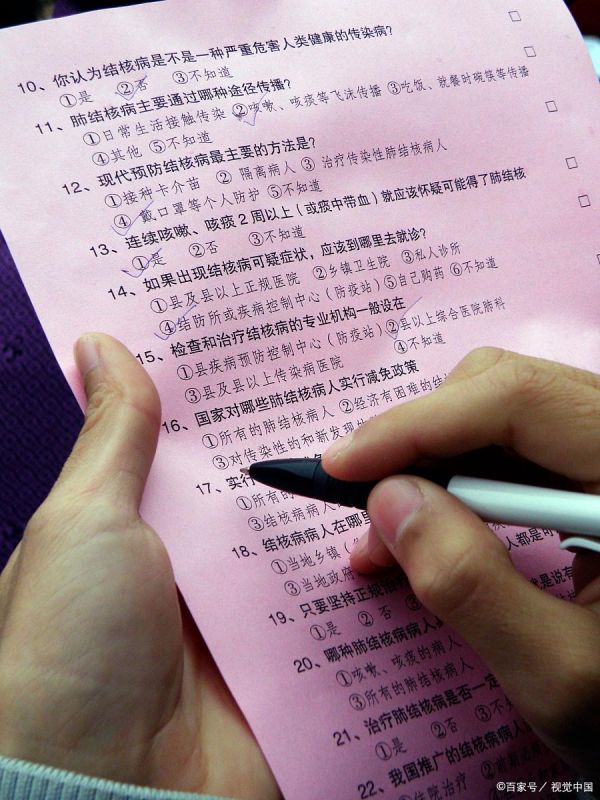 10、你认为结核病是不是一种严重危害人类健康的传染病?
①是 ②否 ③不知道
11、肺结核病主要通过哪种途径传播?
①日常生活接触传染 ②咳嗽、咳痰等飞沫传播 ③吃饭、就餐时碗筷等传播
④其他 ⑤不知道
12、现代预防结核病最主要的方法是?
①接种卡介苗 ② 隔离病人 ③ 治疗传染性肺结核病人
④ 戴口罩等个人防护 ⑤不知道
13、连续咳嗽、咳痰2周以上(或痰中带血)就应该怀疑可能得了肺结核
①是 ②否 ③不知道
14、如果出现结核病可疑症状,应该到哪里去就诊?
①县及县以上正规医院 ②乡镇卫生院 ③私人诊所
④结防所或疾病控制中心(防疫站) ⑤自己购药 ⑥不知道
15、检查和治疗结核病的专业机构一般设在
①县疾病预防控制中心(防疫站) ②县以上综合医院肺科
③县及县以上传染病医院 ④不知道
16、国家对哪些肺结核病人实行减免政策
①所有的肺结核病人 ②经济有困难的结
③对传染性的和新发现的
17、实行
①所有的
③结核病病人
18、结核病病人在哪里
①当地乡镇(
③当地政府
人都是可
19、只要坚持正规治
①是 ②否
是说有
20、哪种肺结核病病人
①咳嗽、咳痰的病人
③所有的肺结核病人
21、治疗肺结核病是否一定
①是 ②否 ③不
22、我国推广的结核病病人
①住院治疗 ②
©百家号/视觉中国